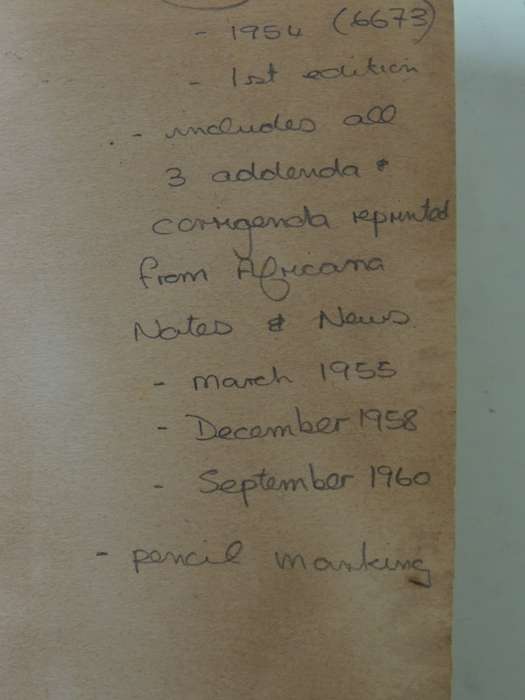 - 1954 (6673)
- 1st edition
- includes all
3 addenda &
corrigenda reprinted
from Africana
Notes & News
- March 1955
- December 1958
- September 1960
- pencil marking